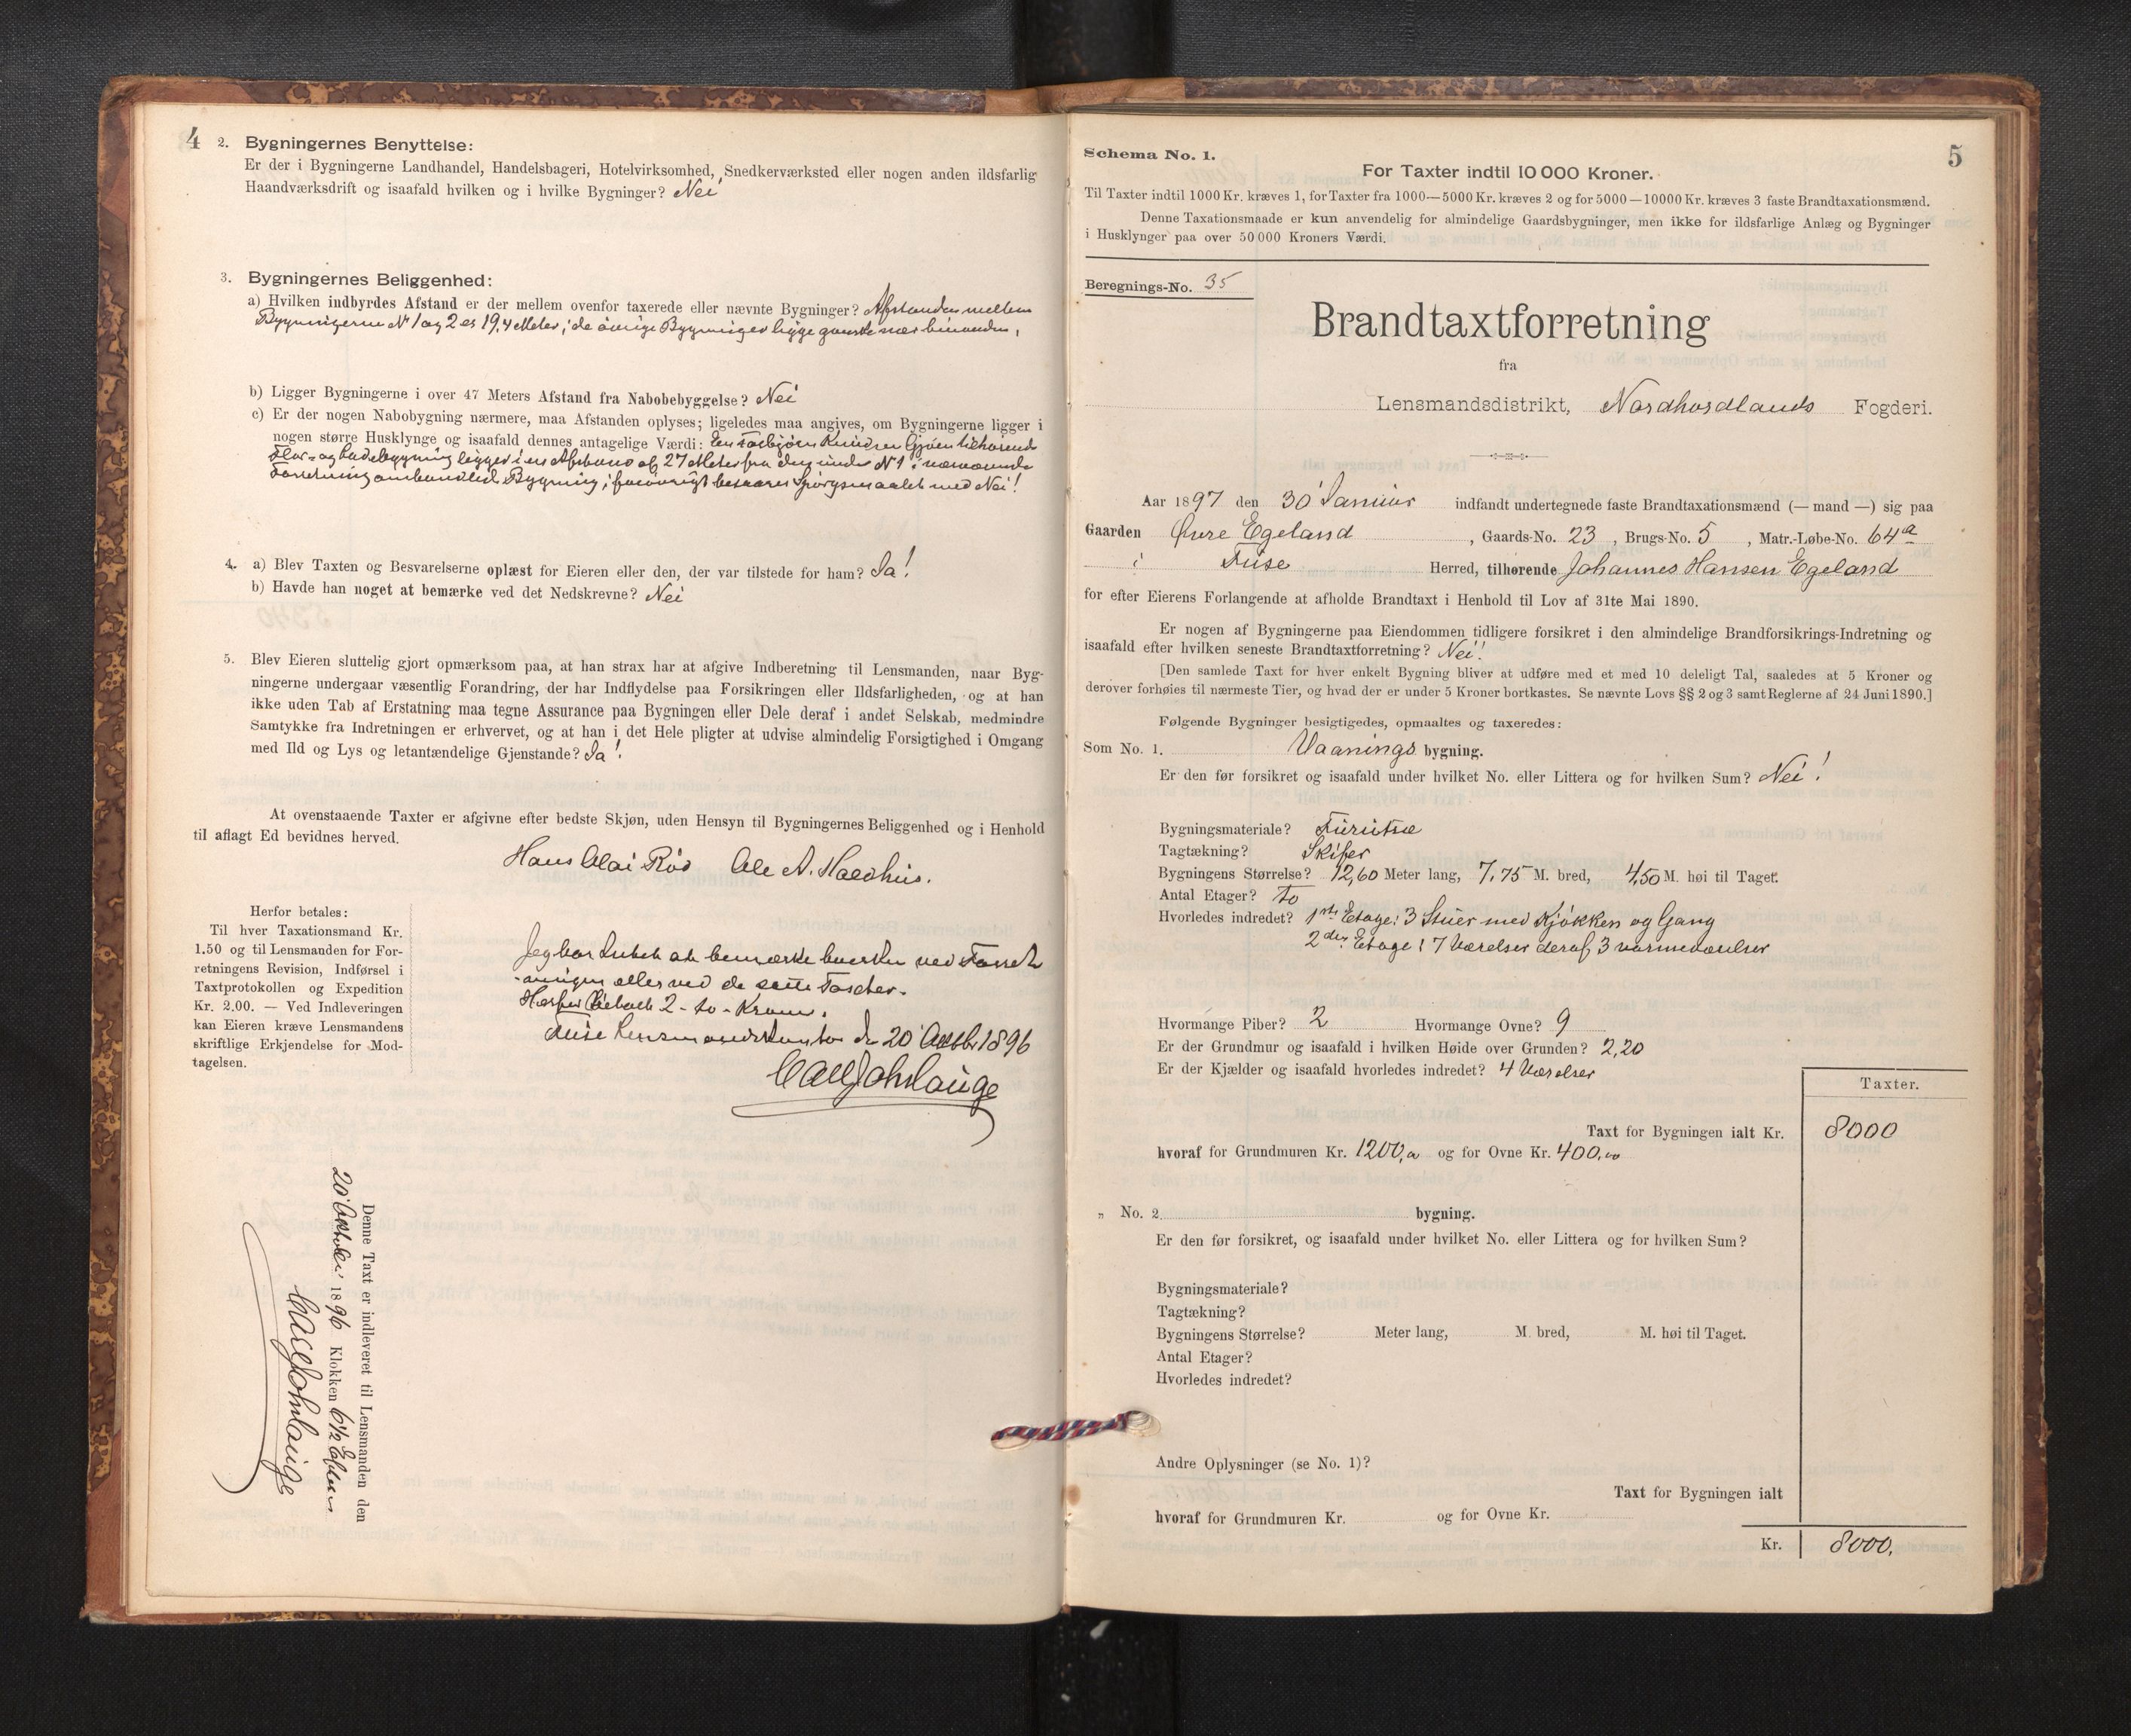 4
2. Bygningernes Benyttelse:
Er der i Bygningerne Landhandel, Handelsbageri, Hotelvirksomhed, Snedkerværksted eller nogen anden ildsfarlig
Haandværksdrift og isaafald hvilken og i hvilke Bygninger? Nei
3. Bygningernes Beliggenhed:
a) Hvilken indbyrdes Afstand er der mellem ovenfor taxerede eller nævnte Bygninger? Afstanden mellem
Bygningerne N 1 og 2 er 19,4 Meter; de øvrige Bygninger ligge ganske nær hinanden.
b) Ligger Bygningerne i over 47 Meters Afstand fra Nabobebyggelse? Nei
c) Er der nogen Nabobygning nærmere, maa Afstanden oplyses; ligeledes maa angives, om Bygningerne ligger i
nogen større Husklynge og isaafald dennes antagelige Værdi: En Torbjørn Knudsen Gjøen tilhørende
Flor- og Ladebygning ligger i en Afstand af 27 Meter fra den under N 1 i nærværende
Forretning ombandlede Bygning; forøvrigt besvares Spørgsmaalet med Nei!
4. a) Blev Taxten og Besvarelserne oplæst for Eieren eller den, der var tilstede for ham? Ja!
b) Havde han noget at bemærke ved det Nedskrevne? Nei
5. Blev Eieren sluttelig gjort opmærksom paa, at han strax har at afgive Indberetning til Lensmanden, naar Byg-
ningerne undergaar væsentlig Forandring, der har Indflydelse paa Forsikringen eller Ildsfarligheden, og at han
ikke uden Tab af Erstatning maa tegne Assurance paa Bygningen eller Dele deraf i andet Selskab, medmindre
Samtykke fra Indretningen er erhvervet, og at han i det Hele pligter at udvise almindelig Forsigtighed i Omgang
med Ild og Lys og letantændelige Gjenstande? Ja!
At ovenstaaende Taxter er afgivne efter bedste Skjøn, uden Hensyn til Bygningernes Beliggenhed og i Henhold
til aflagt Ed bevidnes herved.
Hans Olai Rød Ole A. Haldhus.
Herfor betales:
Til hver Taxationsmand Kr.
1.50 og til Lensmanden for For-
retningens Revision, Indførsel i
Taxtprotokollen og Expedition
Kr. 2.00. — Ved Indleveringen
kan Eieren kræve Lensmandens
skriftlige Erkjendelse for Mod-
tagelsen.
Jeg har Intet at bemærke hverken ved Forret-
ningen eller ved de satte Taxter.
Herfor Betalt 2 - to - Kroner.
Fuse Lensmandskontor den 20 Octbr 1896
Carl Joh Lange
Denne Taxt er indleveret til Lensmanden den
20 October 1896 Klokken 6 1/2 Efterm
Carl Joh Lange
5
Schema No. 1.
For Taxter indtil 10 000 Kroner.
Til Taxter indtil 1000 Kr. kræves 1, for Taxter fra 1000—5000 Kr. kræves 2 og for 5000—10000 Kr. kræves 3 faste Brandtaxationsmænd.
Denne Taxationsmaade er kun anvendelig for almindelige Gaardsbygninger, men ikke for ildsfarlige Anlæg og Bygninger
i Husklynger paa over 50 000 Kroners Værdi.
Beregnings-No. 35
Brandtaxtforretning
fra
Lensmandsdistrikt, Nordhordlands Fogderi.
Aar 1897 den 30 Januar indfandt undertegnede faste Brandtaxationsmænd (— mand —) sig paa
Gaarden Øvre Egeland, Gaards-No. 23, Brugs-No. 5, Matr.-Løbe-No. 64a
i Fuse Herred, tilhørende Johannes Hansen Egeland
for efter Eierens Forlangende at afholde Brandtaxt i Henhold til Lov af 31te Mai 1890.
Er nogen af Bygningerne paa Eiendommen tidligere forsikret i den almindelige Brandforsikrings-Indretning og
isaafald efter hvilken seneste Brandtaxtforretning? Nei!
[Den samlede Taxt for hver enkelt Bygning bliver at udføre med et med 10 deleligt Tal, saaledes at 5 Kroner og
derover forhøies til nærmeste Tier, og hvad der er under 5 Kroner bortkastes. Se nævnte Lovs §§ 2 og 3 samt Reglerne af 24 Juni 1890.]
Følgende Bygninger besigtigedes, opmaaltes og taxeredes:
Som No. 1. Vaanings bygning.
Er den før forsikret og isaafald under hvilket No. eller Littera og for hvilken Sum? Nei!
Bygningsmateriale? Furutræ
Tagtækning? Skifer
Bygningens Størrelse? 12,60 Meter lang, 7,75 M. bred, 4,50 M. høi til Taget.
Antal Etager? to
Hvorledes indredet? 1ste Etage: 3 Stuer med Kjøkken og Gang
2den Etage: 7 Værelser deraf 3 varmeværelser
Hvormange Piber? 2 Hvormange Ovne? 9
Er der Grundmur og isaafald i hvilken Høide over Grunden? 2,20
Er der Kjælder og isaafald hvorledes indredet? 4 Værelser
Taxter.
Taxt for Bygningen ialt Kr. 8000
hvoraf for Grundmuren Kr. 1200,00 og for Ovne Kr. 400,00
„ No. 2 bygning.
Er den før forsikret, og isaafald under hvilket No. eller Littera og for hvilken Sum?
Bygningsmateriale?
Tagtækning?
Bygningens Størrelse? Meter lang, M. bred, M. høi til Taget.
Antal Etager?
Hvorledes indredet?
Andre Oplysninger (se No. 1)?
Taxt for Bygningen ialt
hvoraf for Grundmuren Kr. og for Ovne Kr.
Kr. 8000.